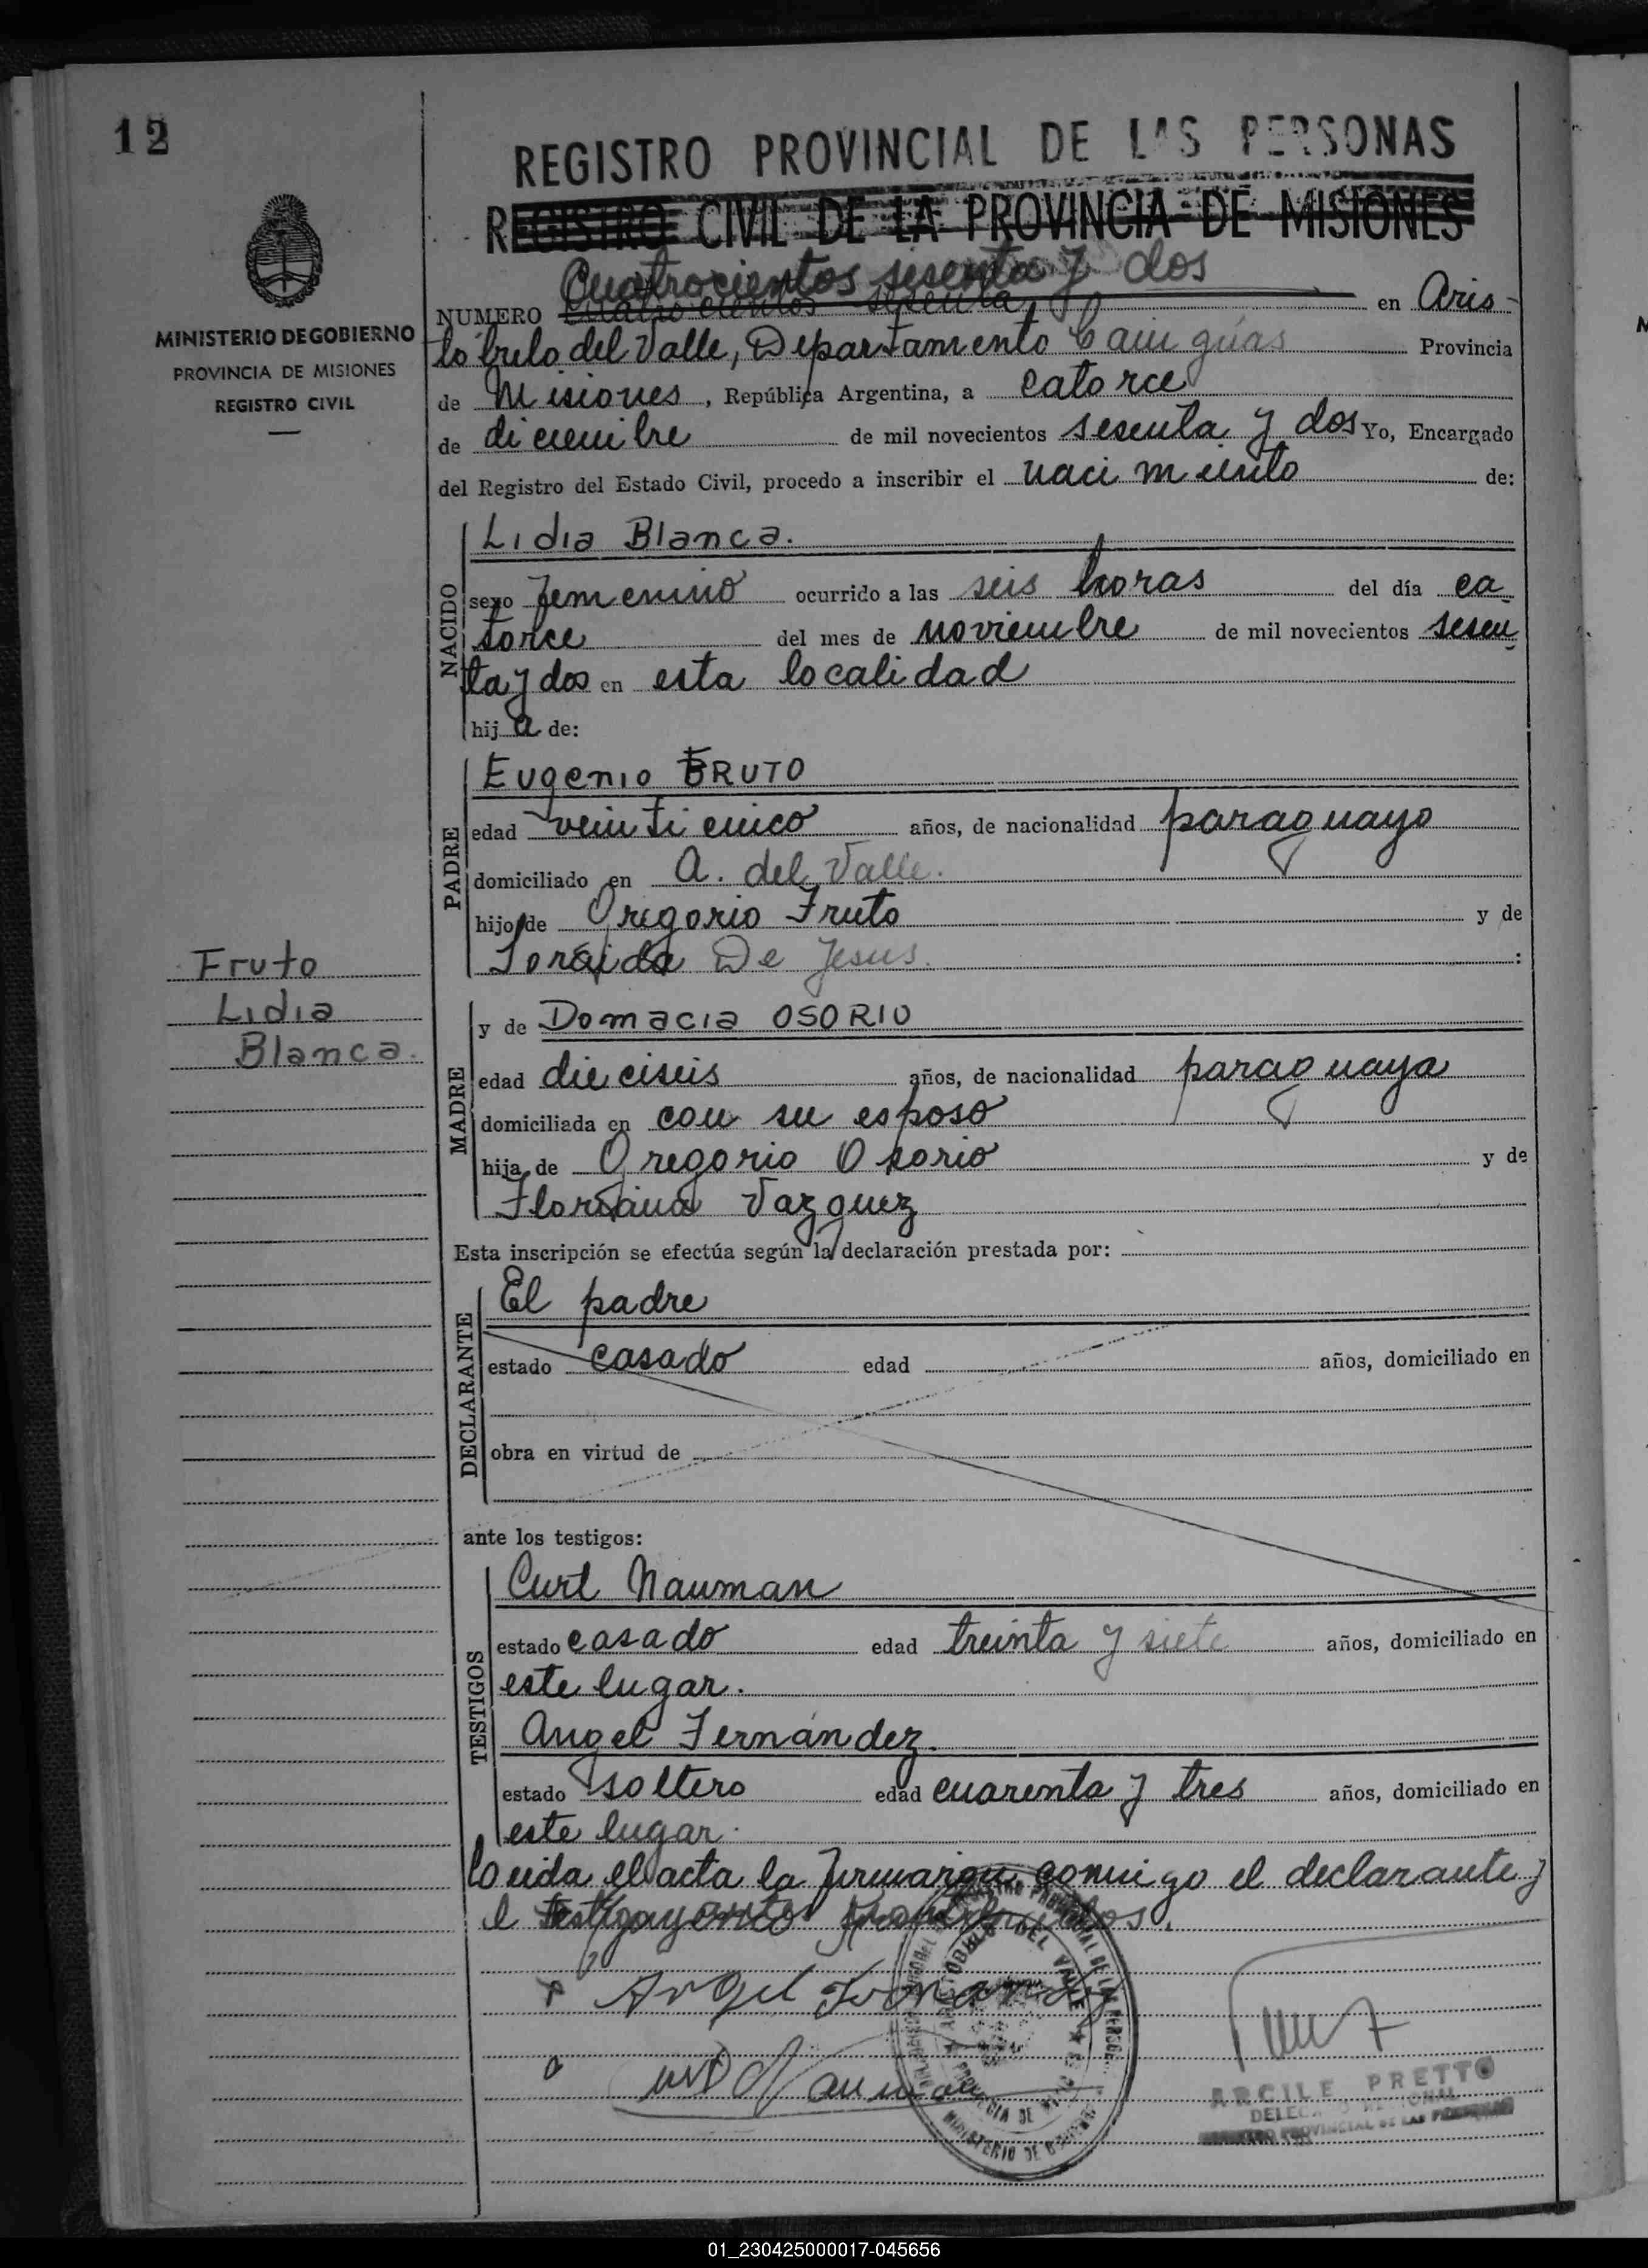 12
REGISTRO PROVINCIAL DE LAS PERSONAS
REGISTRO CIVIL DE LA PROVINCIA DE MISIONES
MINISTERIO DE GOBIERNO
PROVINCIA DE MISIONES
REGISTRO CIVIL
Cuatrocientos sesenta y dos
NUMERO Cuatro cientos sesenta y en Aris-
tóbulo del Valle, Departamento Cainguás Provincia
de Misiones, República Argentina, a catorce
de diciembre de mil novecientos sesenta y dos Yo, Encargado
del Registro del Estado Civil, procedo a inscribir el nacimiento de:
NACIDO
Lidia Blanca.
sexo femenino ocurrido a las seis horas del día ca-
torce del mes de noviembre de mil novecientos sesen-
ta y dos en esta localidad
hija de:
PADRE
Eugenio FRUTO
edad veinticinco años, de nacionalidad paraguayo
domiciliado en A. del Valle.
hijo de Gregorio Fruto y de
Soraida De Jesus.
Fruto
Lidia
Blanca.
MADRE
y de Domacia OSORIO
edad dieciseis años, de nacionalidad paraguaya
domiciliada en con su esposo
hija de Gregorio Osorio y de
Floriana Vazquez
Esta inscripción se efectúa según la declaración prestada por:
DECLARANTE
El padre
estado casado edad años, domiciliado en
obra en virtud de
ante los testigos:
TESTIGOS
Curt Nauman
estado casado edad treinta y siete años, domiciliado en
este lugar.
Angel Fernández.
estado soltero edad cuarenta y tres años, domiciliado en
este lugar.
Leida el acta la firmaron conmigo el declarante y
Angel Fernandez
Nauman
ARCILE PRETTO
REGISTRO PROVINCIAL DE LAS PERSONAS
01_230425000017-045656